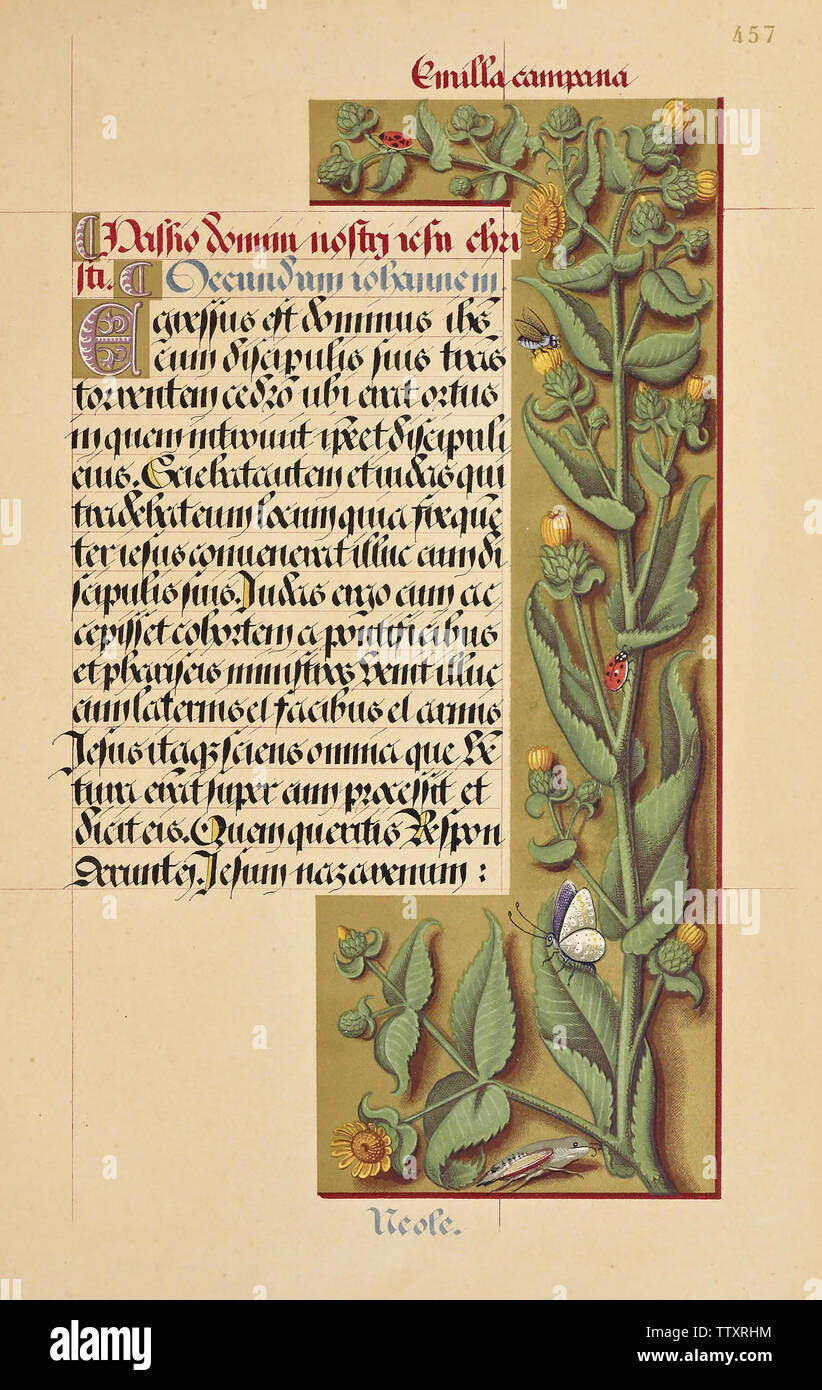 457
Enulla campana
Passio domini nostrj iesu chri
sti. Secundum iohannem.
Egressus est dominus ihs
cum discipulis suis trãs
torrentem cedrõ ubi erat ortus
in quem introiuit ip̃e et discipuli
eius. Sciebat autem et iudas qui
tradebat eum locum quia frequẽ
ter iesus conuenerat illuc cum di
scipulis suis. Judas ergo cum ac
cepisset cohortem a põtificibus
et phariseis ministros venit illuc
cum laternis et facibus et armis
Jesus itaqz sciens omnia que vẽ
tura erãt super eum processit et
dicit eis. Quem queritis Respon
derunt ej. Jesum nazarenum :
Neole.
alamy
Image ID: TTXRHM
www.alamy.com